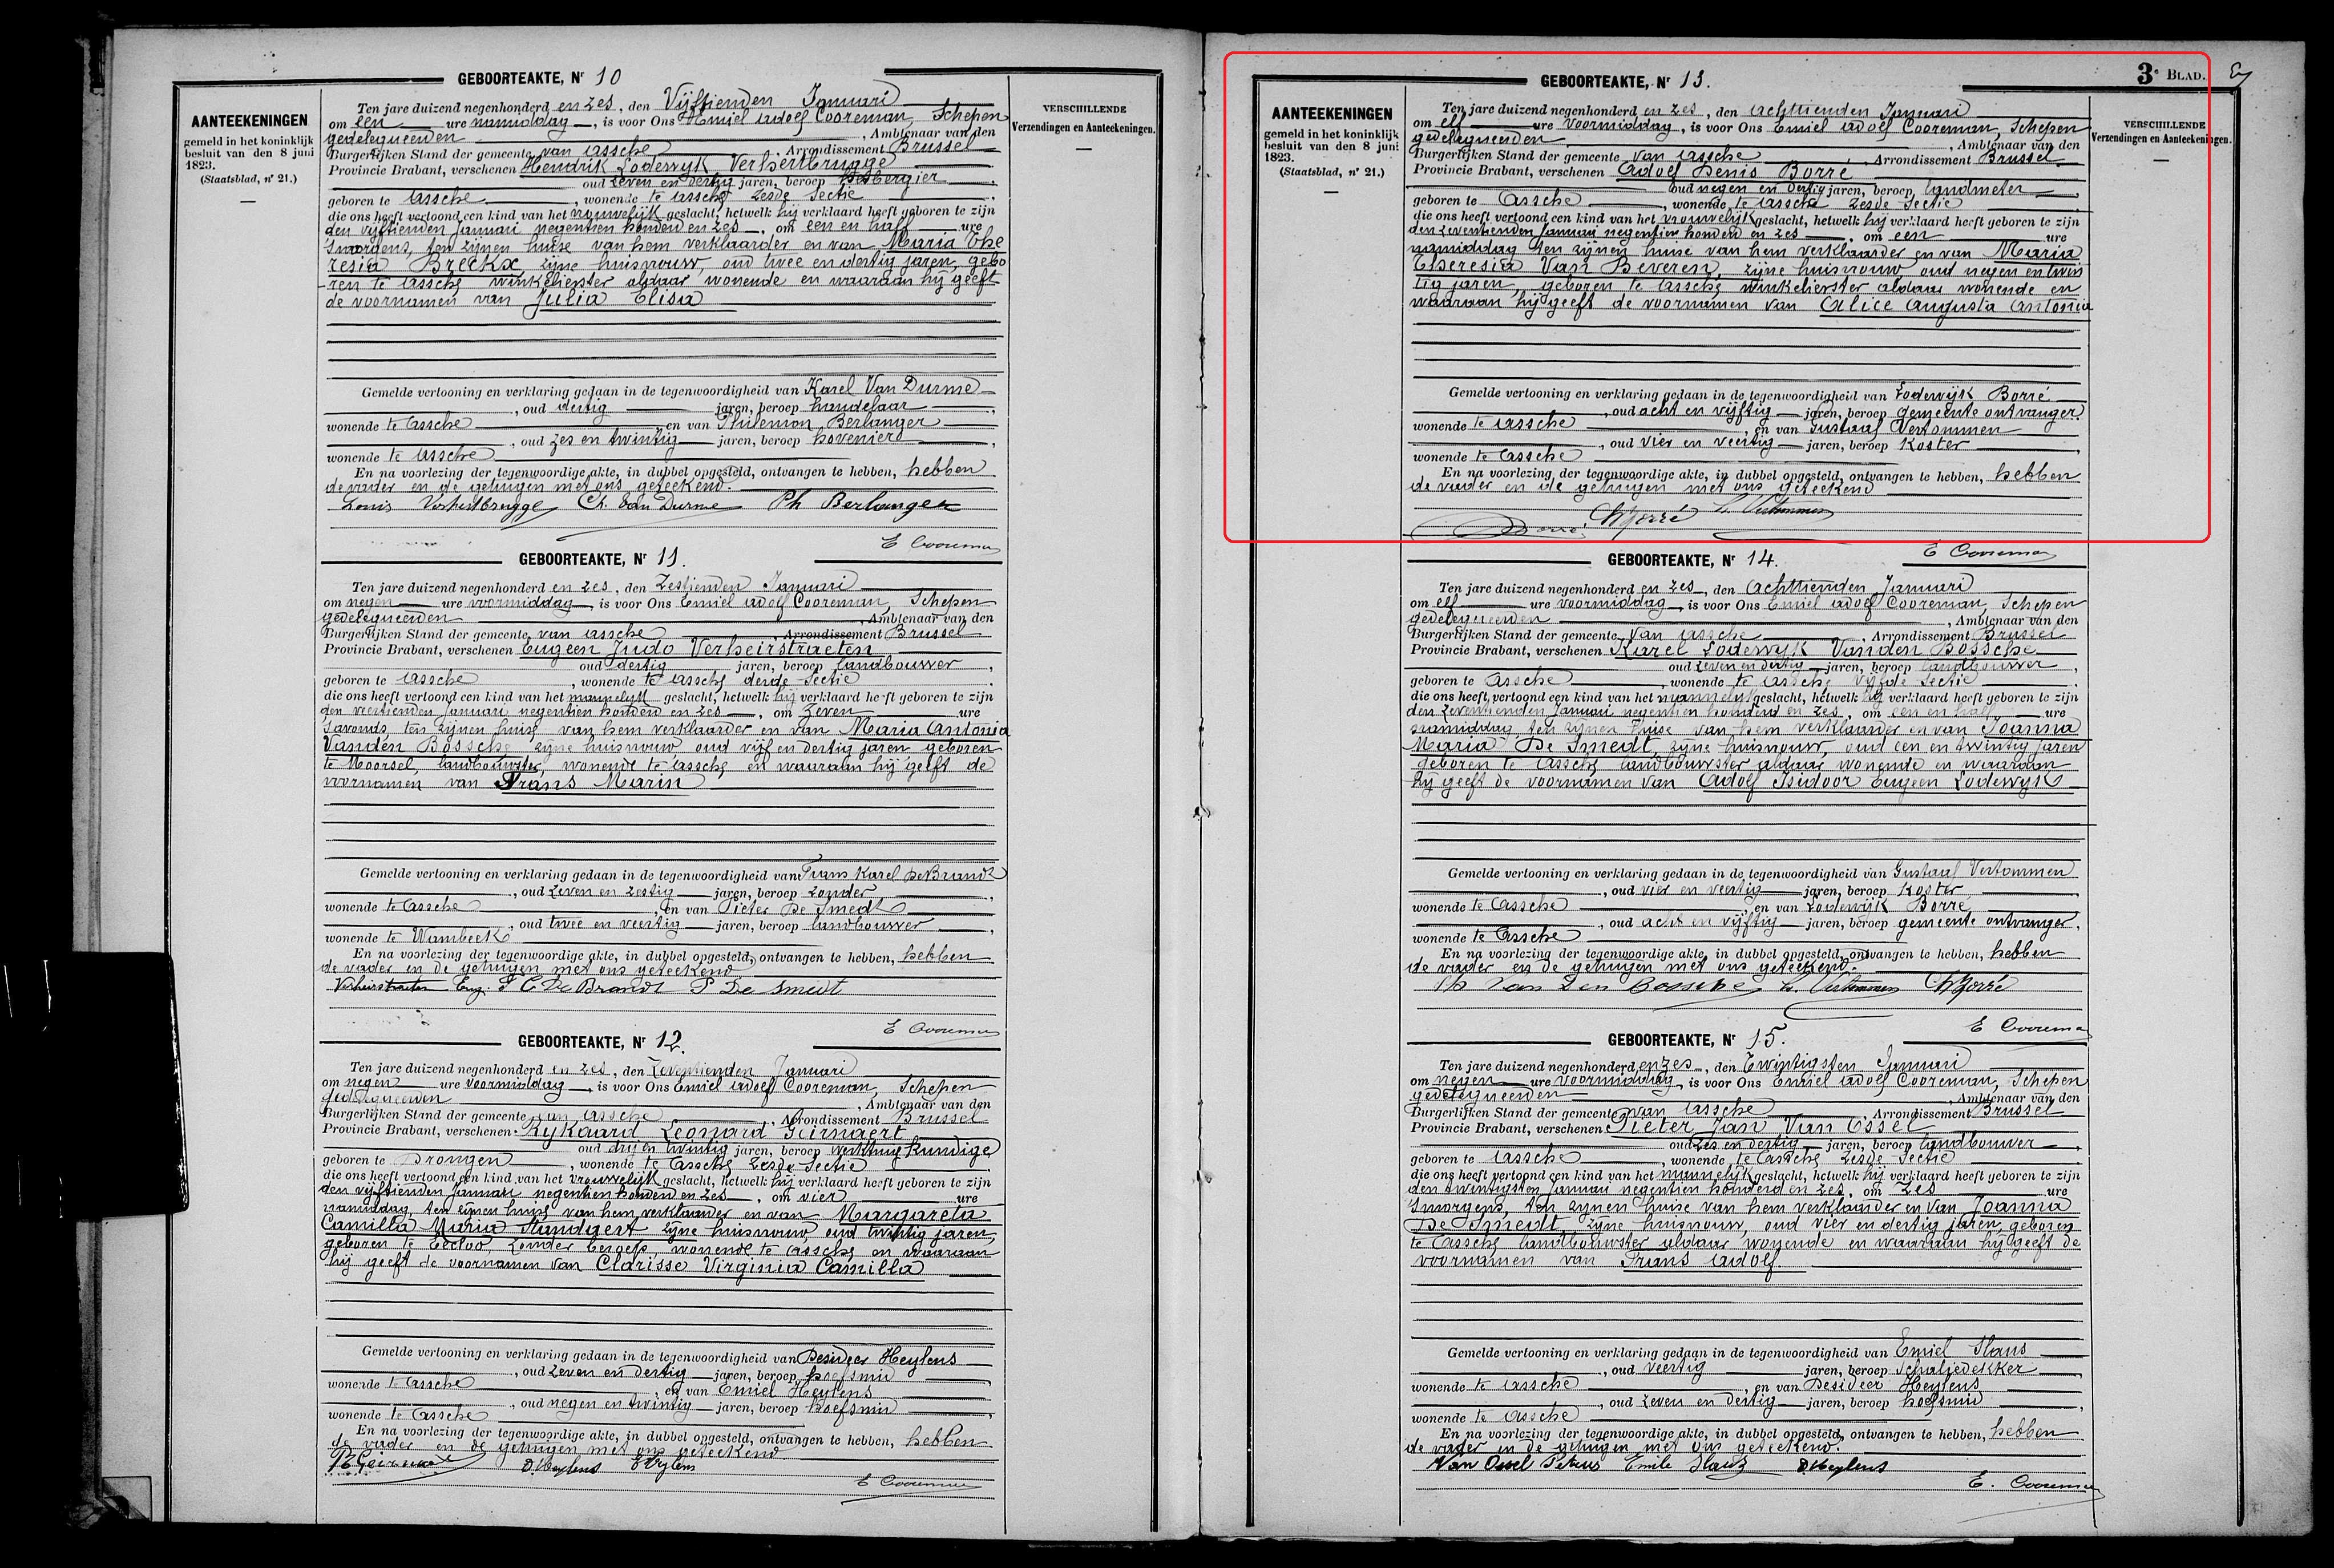 GEBOORTEAKTE, Nr 10
AANTEEKENINGEN
gemeld in het koninklijk
besluit van den 8 juni
1823.
(Staatsblad, nr 21.)
VERSCHILLENDE
Verzendingen en Aanteekeningen.
Ten jare duizend negenhonderd en zes, den Vijftienden Januari
om een ure namiddag, is voor Ons Emiel Adolf Cooreman, Schepen
gedelegueerden, Ambtenaar van den
Burgerlijken Stand der gemeente van Assche, Arrondissement Brussel
Provincie Brabant, verschenen Hendrik Lodewyk Verheitbrugge
oud zeven en dertig jaren, beroep herbergier,
geboren te Assche, wonende te Assche zesde Sectie
die ons heeft vertoond een kind van het vrouwelijk geslacht, hetwelk hij verklaard heeft geboren te zijn
den vijftienden Januari negentien honderd en zes, om een en half ure
smorgens, ten zijnen huise van hem verklaarder en van Maria The
resia Breckx, zijne huisvrouw, oud twee en dertig jaren, gebo
ren te Assche winkelierster aldaar wonende en waaraan hij geeft
de voornamen van Julia Elisa
Gemelde vertooning en verklaring gedaan in de tegenwoordigheid van Karel Van Durme
, oud dertig jaren, beroep handelaar,
wonende te Assche, en van Philemon Berlanger
, oud zes en twintig jaren, beroep hovenier,
wonende te Assche
En na voorlezing der tegenwoordige akte, in dubbel opgesteld, ontvangen te hebben, hebben
de vader en de getuigen met ons geteekend.
Louis Verheitbrugge Ch. Van Durme Ph Berlanger
E Cooreman
GEBOORTEAKTE, Nr 11.
Ten jare duizend negenhonderd en zes, den Zestienden Januari
om negen ure voormiddag, is voor Ons Emiel Adolf Cooreman, Schepen
gedelegueerden, Ambtenaar van den
Burgerlijken Stand der gemeente van Assche, Arrondissement Brussel
Provincie Brabant, verschenen Eugeen Judo Verheirstraeten
oud dertig jaren, beroep landbouwer,
geboren te Assche, wonende te Assche derde Sectie
die ons heeft vertoond een kind van het mannelijk geslacht, hetwelk hij verklaard heeft geboren te zijn
den veertienden Januari negentien honderd en zes, om zeven ure
savonds, ten zijnen huise van hem verklaarder en van Maria Antonia
Vanden Bossche zijne huisvrouw oud vijf en dertig jaren geboren
te Moorsel, landbouwster, wonende te Assche en waaraan hij geeft de
voornamen van Frans Marin
Gemelde vertooning en verklaring gedaan in de tegenwoordigheid van Frans Karel De Brandt
, oud zeven en zestig jaren, beroep zonder,
wonende te Assche, en van Pieter De Smedt
, oud twee en veertig jaren, beroep landbouwer,
wonende te Wambeek
En na voorlezing der tegenwoordige akte, in dubbel opgesteld, ontvangen te hebben, hebben
de vader en de getuigen met ons geteekend
Verheirstraeten Eug. F C De Brandt P De Smedt
E Cooreman
GEBOORTEAKTE, Nr 12.
Ten jare duizend negenhonderd en zes, den Zeventienden Januari
om negen ure voormiddag, is voor Ons Emiel Adolf Cooreman, Schepen
gedelegueerden, Ambtenaar van den
Burgerlijken Stand der gemeente van Assche, Arrondissement Brussel
Provincie Brabant, verschenen Rykaard Leonard Geirnaert
oud drij en twintig jaren, beroep werktuigkundige
geboren te Drongen, wonende te Assche zesde Sectie
die ons heeft vertoond een kind van het vrouwelijk geslacht, hetwelk hij verklaard heeft geboren te zijn
den vijftienden Januari negentien honderd en zes, om vier ure
namiddag, ten zijnen huise van hem verklaarder en van Margareta
Camilla Maria Standaert zijne huisvrouw oud twintig jaren,
geboren te Eecloo, zonder beroep, wonende te Assche en waaraan
hij geeft de voornamen van Clarisse Virginia Camilla
Gemelde vertooning en verklaring gedaan in de tegenwoordigheid van Desideer Heylens
, oud zeven en dertig jaren, beroep hoefsmid,
wonende te Assche, en van Emiel Heylens
, oud negen en twintig jaren, beroep hoefsmid,
wonende te Assche
En na voorlezing der tegenwoordige akte, in dubbel opgesteld, ontvangen te hebben, hebben
de vader en de getuigen met ons geteekend.
R Geirnaert D. Heylens E Heylens
E Cooreman
3e BLAD.
GEBOORTEAKTE, Nr 13.
AANTEEKENINGEN
gemeld in het koninklijk
besluit van den 8 juni
1823.
(Staatsblad, nr 21.)
VERSCHILLENDE
Verzendingen en Aanteekeningen.
Ten jare duizend negenhonderd en zes, den achttienden Januari
om elf ure voormiddag, is voor Ons Emiel Adolf Cooreman, Schepen
gedelegueerden, Ambtenaar van den
Burgerlijken Stand der gemeente van Assche, Arrondissement Brussel.
Provincie Brabant, verschenen Adolf Denis Borré
oud negen en dertig jaren, beroep landmeter,
geboren te Assche, wonende te Assche zesde Sectie
die ons heeft vertoond een kind van het vrouwelijk geslacht, hetwelk hij verklaard heeft geboren te zijn
den zeventienden Januari negentien honderd en zes, om een ure
namiddag ten zijnen huise van hem verklaarder en van Maria
Theresia Van Beveren, zijne huisvrouw oud negen en twin
tig jaren, geboren te Assche winkelierster aldaar wonende en
waaraan hij geeft de voornamen van Alice Augusta Antonia
Gemelde vertooning en verklaring gedaan in de tegenwoordigheid van Lodewijk Borré
, oud acht en vijftig jaren, beroep gemeente ontvanger.
wonende te Assche, en van Gustaaf Vertommen
, oud vier en veertig jaren, beroep Koster,
wonende te Assche
En na voorlezing der tegenwoordige akte, in dubbel opgesteld, ontvangen te hebben, hebben
de vader en de getuigen met ons geteekend
Borré Borré G. Vertommen
E Cooreman
GEBOORTEAKTE, Nr 14.
Ten jare duizend negenhonderd en zes, den achttienden Januari
om elf ure voormiddag, is voor Ons Emiel Adolf Cooreman, Schepen
gedelegueerden, Ambtenaar van den
Burgerlijken Stand der gemeente van Assche, Arrondissement Brussel
Provincie Brabant, verschenen Karel Lodewyk Vanden Bossche
oud zeven en dertig jaren, beroep landbouwer,
geboren te Assche, wonende te Assche vijfde Sectie
die ons heeft vertoond een kind van het mannelijk geslacht, hetwelk hij verklaard heeft geboren te zijn
den zeventienden Januari negentien honderd en zes, om een en half ure
namiddag, ten zijnen huise van hem verklaarder en van Joanna
Maria De Smedt, zijne huisvrouw, oud een en twintig jaren
geboren te Assche landbouwster aldaar wonende en waaraan
hij geeft de voornamen van Adolf Isidoor Eugeen Lodewyk
Gemelde vertooning en verklaring gedaan in de tegenwoordigheid van Gustaaf Vertommen
, oud vier en veertig jaren, beroep Koster
wonende te Assche, en van Lodewijk Borré
, oud acht en vijftig jaren, beroep gemeente ontvanger,
wonende te Assche
En na voorlezing der tegenwoordige akte, in dubbel opgesteld, ontvangen te hebben, hebben
de vader en de getuigen met ons geteekend.
Van Den Bossche G. Vertommen Borré
E Cooreman
GEBOORTEAKTE, Nr 15.
Ten jare duizend negenhonderd en zes, den Twintigsten Januari
om negen ure voormiddag, is voor Ons Emiel Adolf Cooreman, Schepen
gedelegueerden, Ambtenaar van den
Burgerlijken Stand der gemeente van Assche, Arrondissement Brussel
Provincie Brabant, verschenen Pieter Jan Van Ossel
oud zes en dertig jaren, beroep landbouwer,
geboren te Assche, wonende te Assche zesde Sectie
die ons heeft vertoond een kind van het mannelijk geslacht, hetwelk hij verklaard heeft geboren te zijn
den twintigsten Januari negentien honderd en zes, om zes ure
smorgens, ten zijnen huise van hem verklaarder en van Joanna
De Smedt, zijne huisvrouw, oud vier en dertig jaren, geboren
te Assche landbouwster aldaar wonende en waaraan hij geeft de
voornamen van Frans Adolf.
Gemelde vertooning en verklaring gedaan in de tegenwoordigheid van Emiel Slaus
, oud veertig jaren, beroep Schaliedekker,
wonende te Assche, en van Desideer Heylens
, oud zeven en dertig jaren, beroep hoefsmid,
wonende te Assche
En na voorlezing der tegenwoordige akte, in dubbel opgesteld, ontvangen te hebben, hebben
de vader en de getuigen met ons geteekend.
Van Ossel Petrus Emile Slaus D. Heylens
E. Cooreman